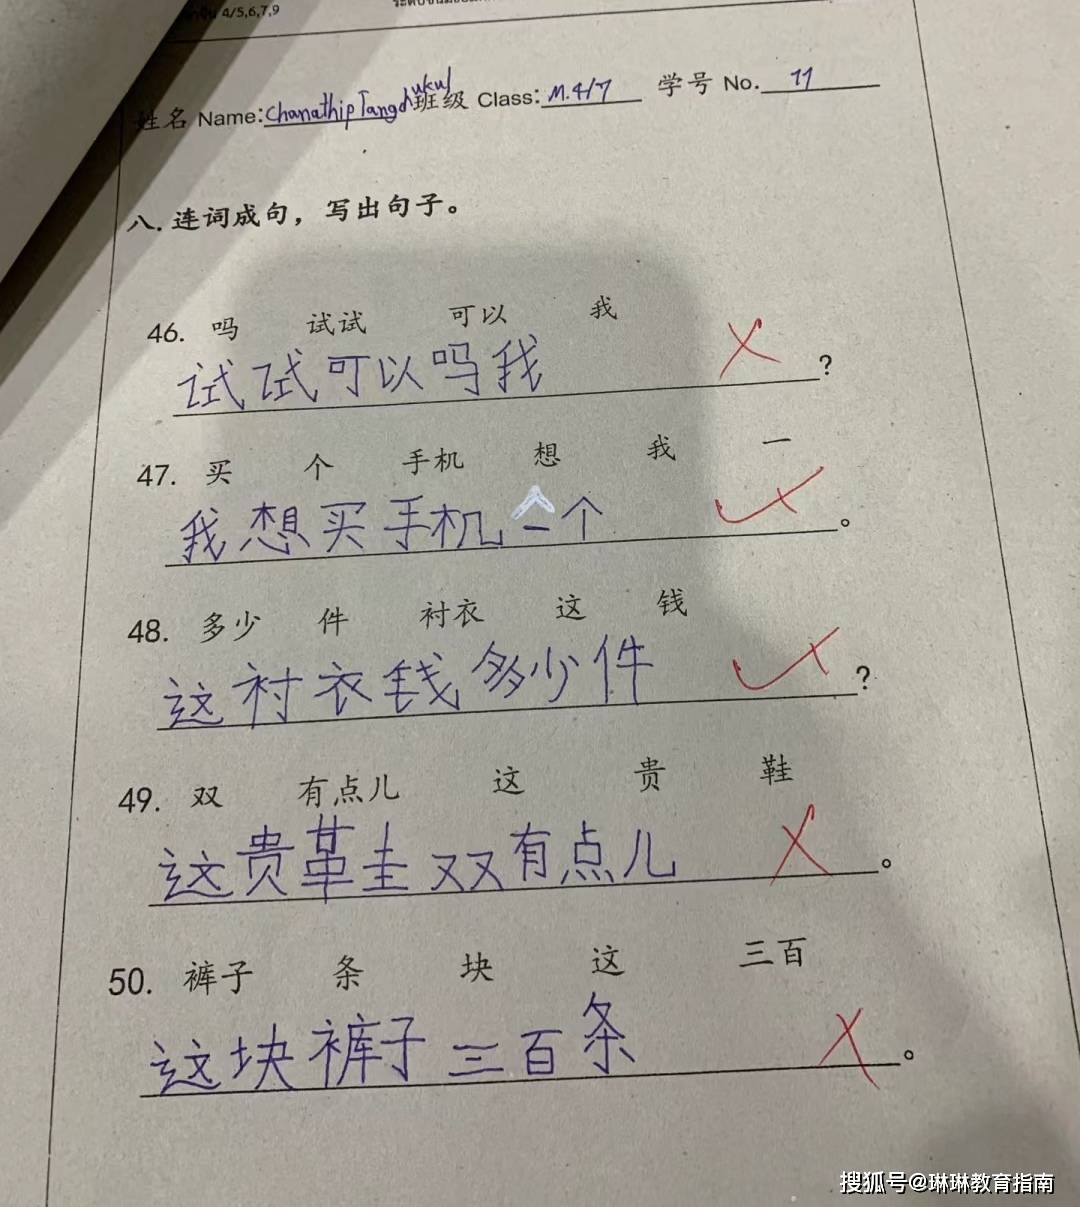 4/5,6,7,9
姓名 Name: Chanathip Tangchukul 班级 Class: M.4/7 学号 No. 11
八. 连词成句，写出句子。
46. 吗 试试 可以 我
试试可以吗我?
47. 买 个 手机 想 我 一
我想买手机一个。
48. 多少 件 衬衣 这 钱
这衬衣钱多少件?
49. 双 有点儿 这 贵 鞋
这贵鞋双有点儿。
50. 裤子 条 块 这 三百
这块裤子三百条。
搜狐号@琳琳教育指南